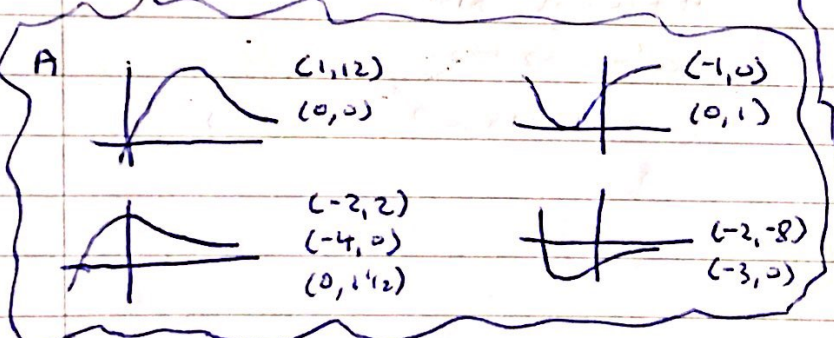 A
(1,12)
(0,0)
(-1,0)
(0,1)
(-2,2)
(-4,0)
(-2,-8)
(-3,0)